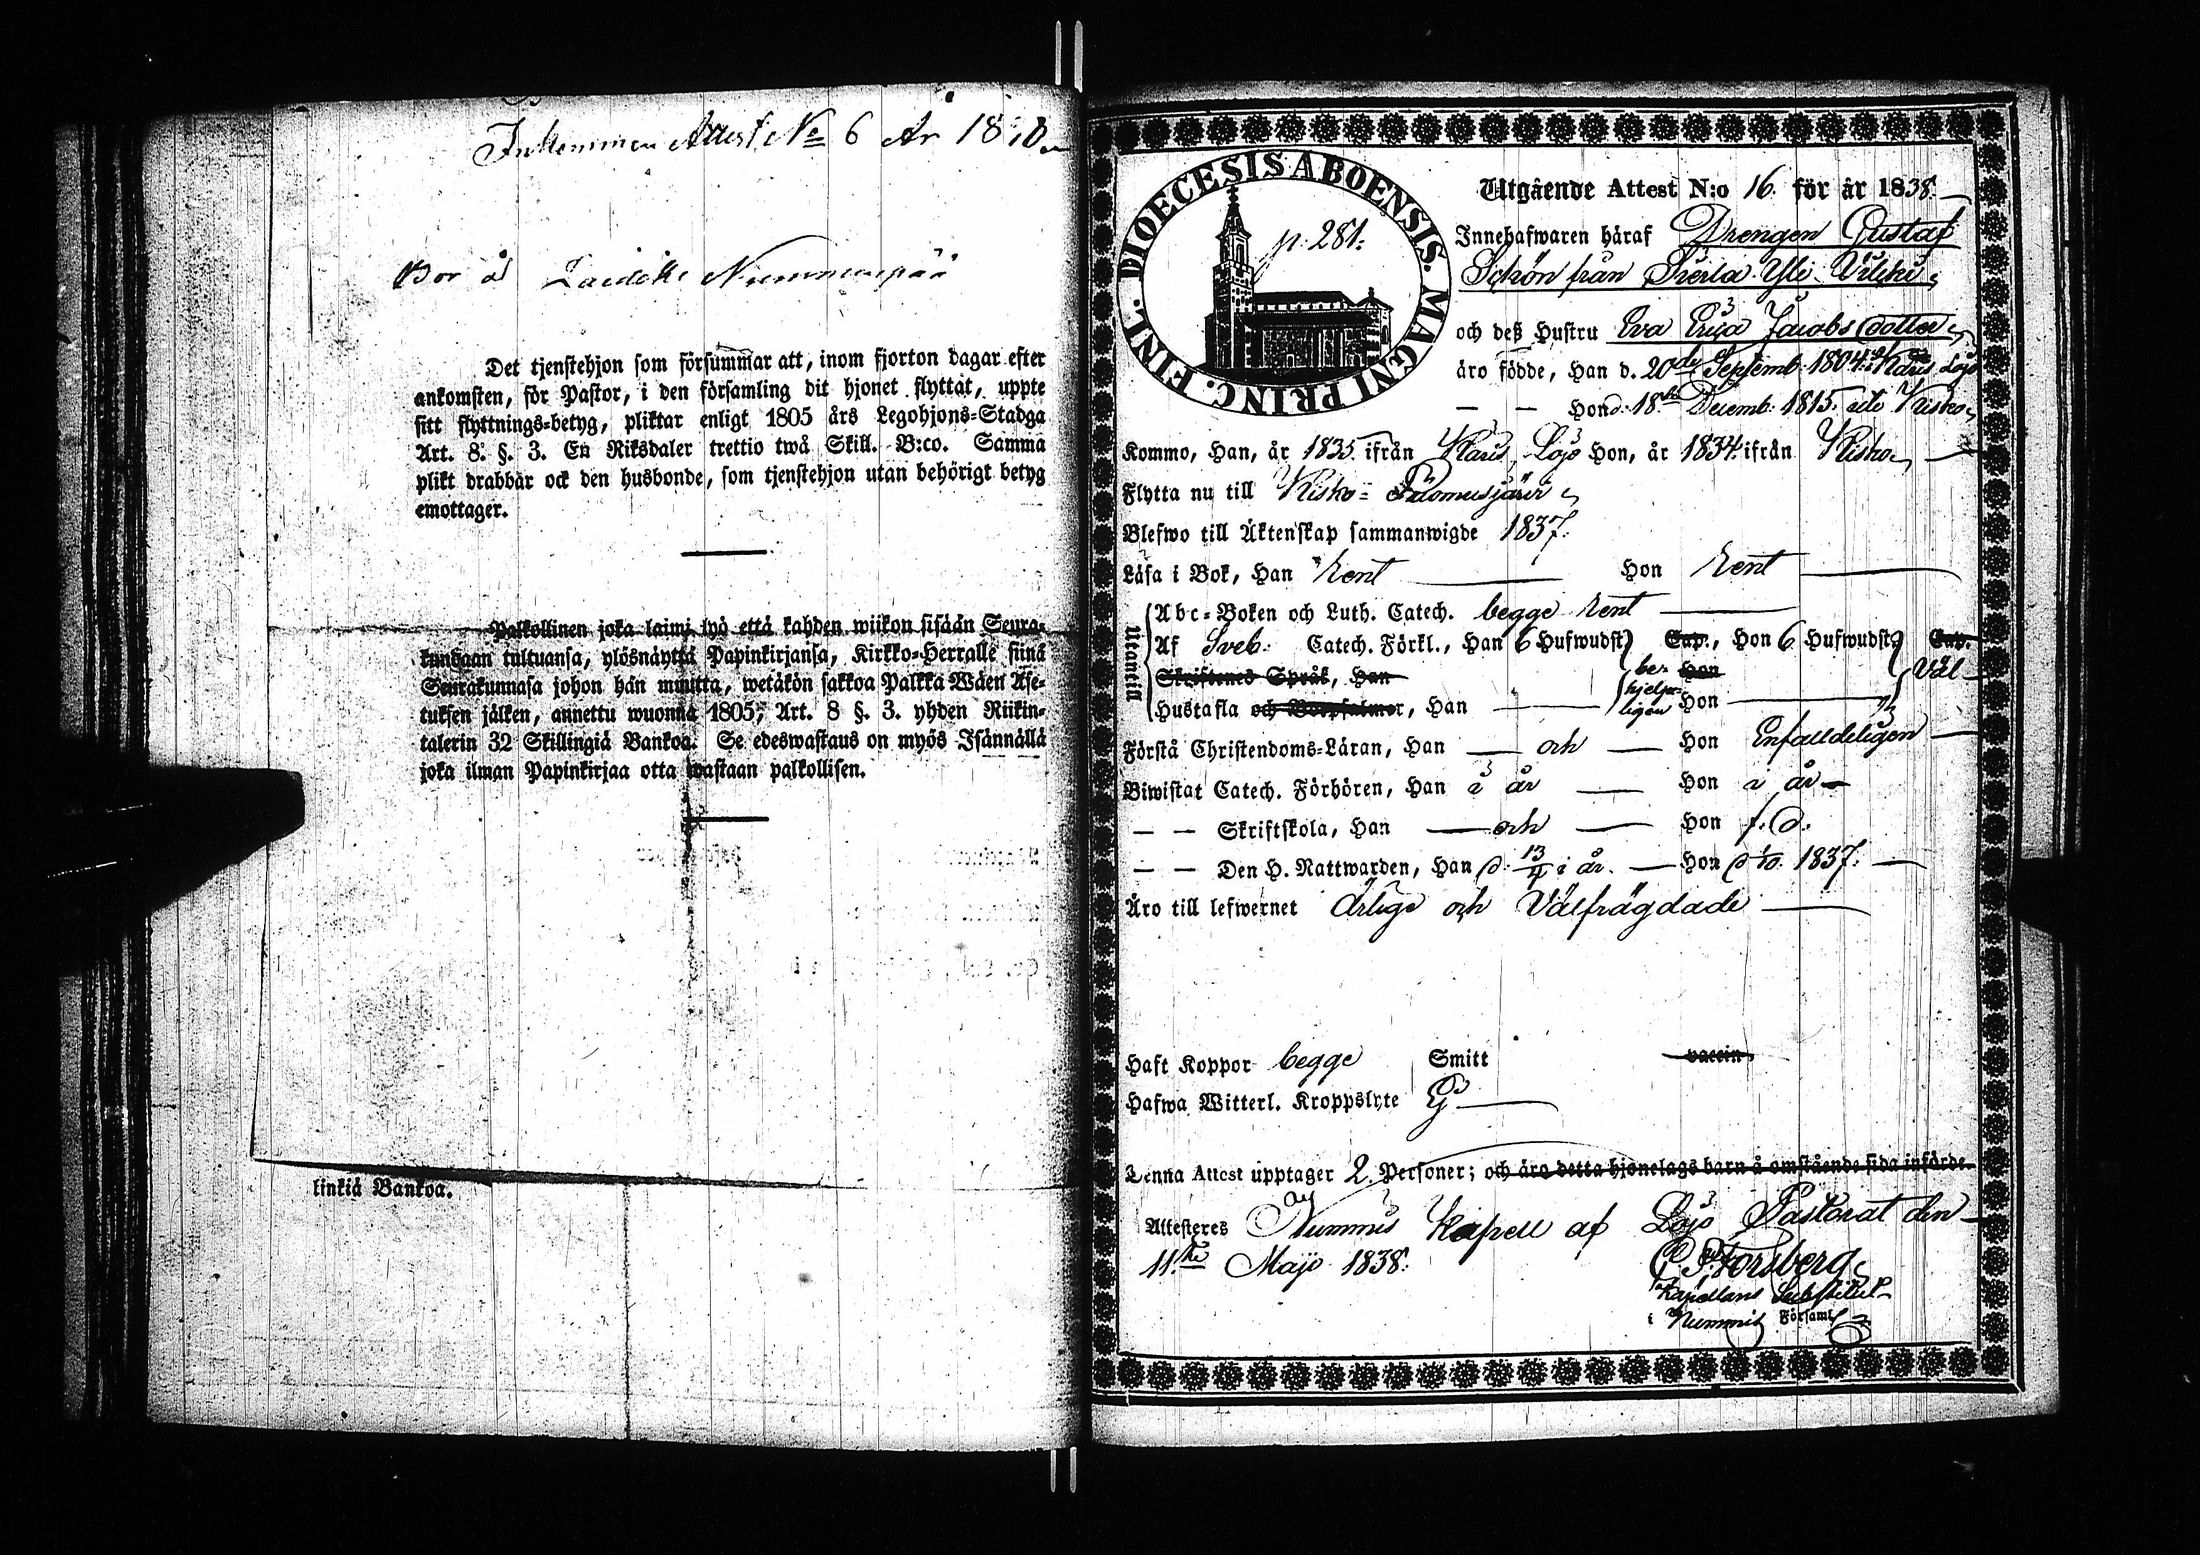 Inkommen Attest No 6 År 18
Bor å Nummenpää
Det tjenstehjon som försummar att, inom fjorton dagar efter
ankomsten, för Pastor, i den församling dit hjonet flyttat, uppte
sitt flyttnings-betyg, pliktar enligt 1805 års Legohjons-Stadga
Art. 8. §. 3. En Riksdaler trettio twå Skill. B:co. Samma
plikt drabbar ock den husbonde, som tjenstehjon utan behörigt betyg
emottager.
Palkollinen joka laimi lyö että kahden wiikon sisään Seura-
kundaan tultuansa, ylösnäyttä Papinkirjansa, Kirkko-Herralle siinä
Seurakunnasa johon hän muutta, wetäkön sakkoa Palkka Wäen Ase-
tuksen jälken, annettu wuonna 1805, Art. 8 §. 3. yhden Riikin-
talerin 32 Skillingiä Bankoa. Se edeswastaus on myös Isännällä
joka ilman Papinkirjaa otta wastaan palkollisen.
linkiä Bankoa.
DIOECESIS ABOENSIS. MAGNI PRINC. FINL.
p. 281.
Utgående Attest N:o 16. för år 1838.
Innehafwaren häraf Drengen Gustaf
Schön från Yli
och deß Hustru Eva Erica Jacobs dotter
äro födde, Han d. 20de Septemb. 1804 i Karis Lojo
— — Hon d. 18de Decemb. 1815. i Kisko
Kommo, Han, år 1835. ifrån Karis Lojo Hon, år 1834. ifrån Kisko
Flytta nu till Kisko
Blefwo till Äktenskap sammanwigde 1837.
Läsa i Bok, Han Rent — Hon Rent
Utantill
Abc-Boken och Luth. Catech. begge Rent
Af Sveb. Catech. Förkl., Han 6 Hufwudst. Cap., Hon 6 Hufwudst. Cap.
Skriftenes Språk, Han be- Hon Väl
Hustafla och Botpsalmer, Han hjelpe-ligen Hon
Förstå Christendoms-Läran, Han — och — Hon Enfalldeligen
Biwistat Catech. Förhören, Han i år — Hon i år
— — Skriftskola, Han — och — Hon f. d.
— — Den H. Nattwarden, Han d. 13/4 i år. — Hon d. 1837.
Äro till lefwernet Ärlige och Välfrägdade
Haft Koppor begge Smitt vaccin
Hafwa Witterl. Kroppslyte Ej
Denna Attest upptager 2. Personer; och äro detta hjonelags barn å omstående sida införde.
Attesteres Nummis Kapell af Lojo Pastorat den
11te Maji 1838.
Forsberg
Kapellans Substitut
i Nummis Församl.